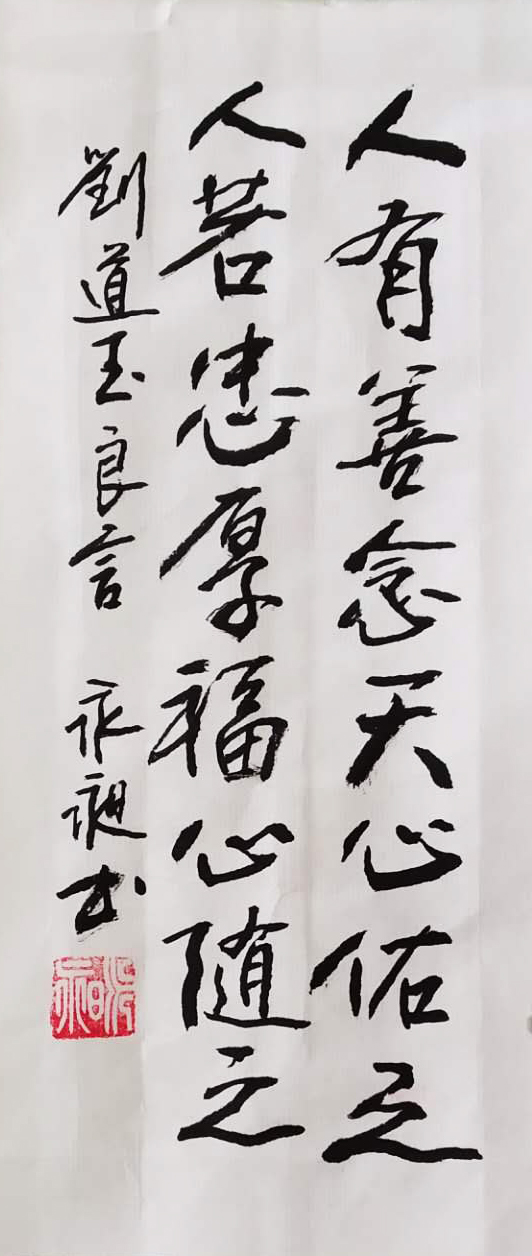 人有善念天必佑之
人若忠厚福必随之
劉道玉良言 永昶书